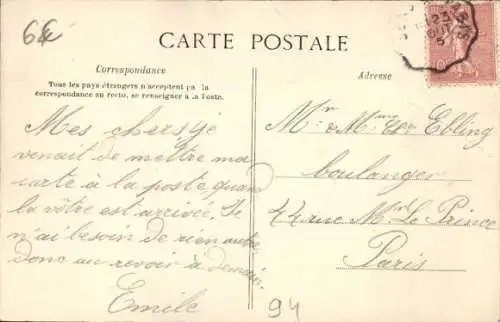 64
CARTE POSTALE
Correspondance
Tous les pays étrangers n'acceptent pas la
correspondance au recto, se renseigner à la Poste.
Mes chers je
venait de mettre ma
carte à la poste quan
la vôtre est arrivée. Je
n'ai besoin de rien autre
donc au revoir à demain.
Emile
Adresse
Mr & Mme Ebling
boulanger
44 rue Mr Le Prince
Paris
94